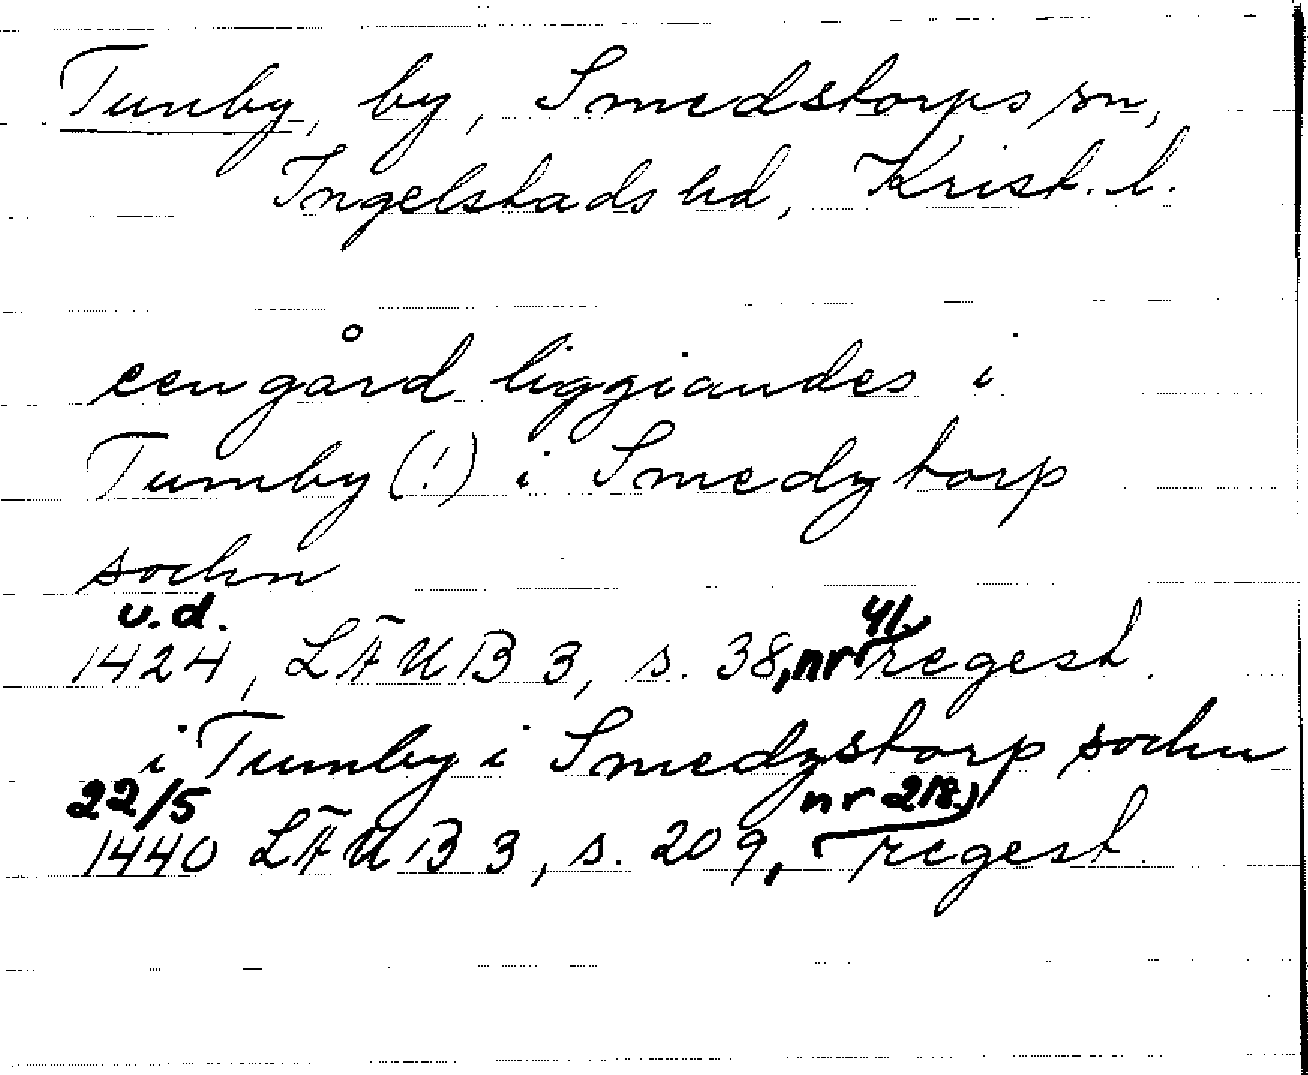 Tunby, by, Smedstorps sn,
Ingelstads hd, Krist. l.
een gård liggiandes i
Tumby (!) i Smedztorp
sochn
u.d.
1424, LÄUB 3, s. 38, nr 41, regest.
i Tumby i Smedzstorp sochn
22/5
1440 LÄUB 3, s. 209, nr 218, regest.